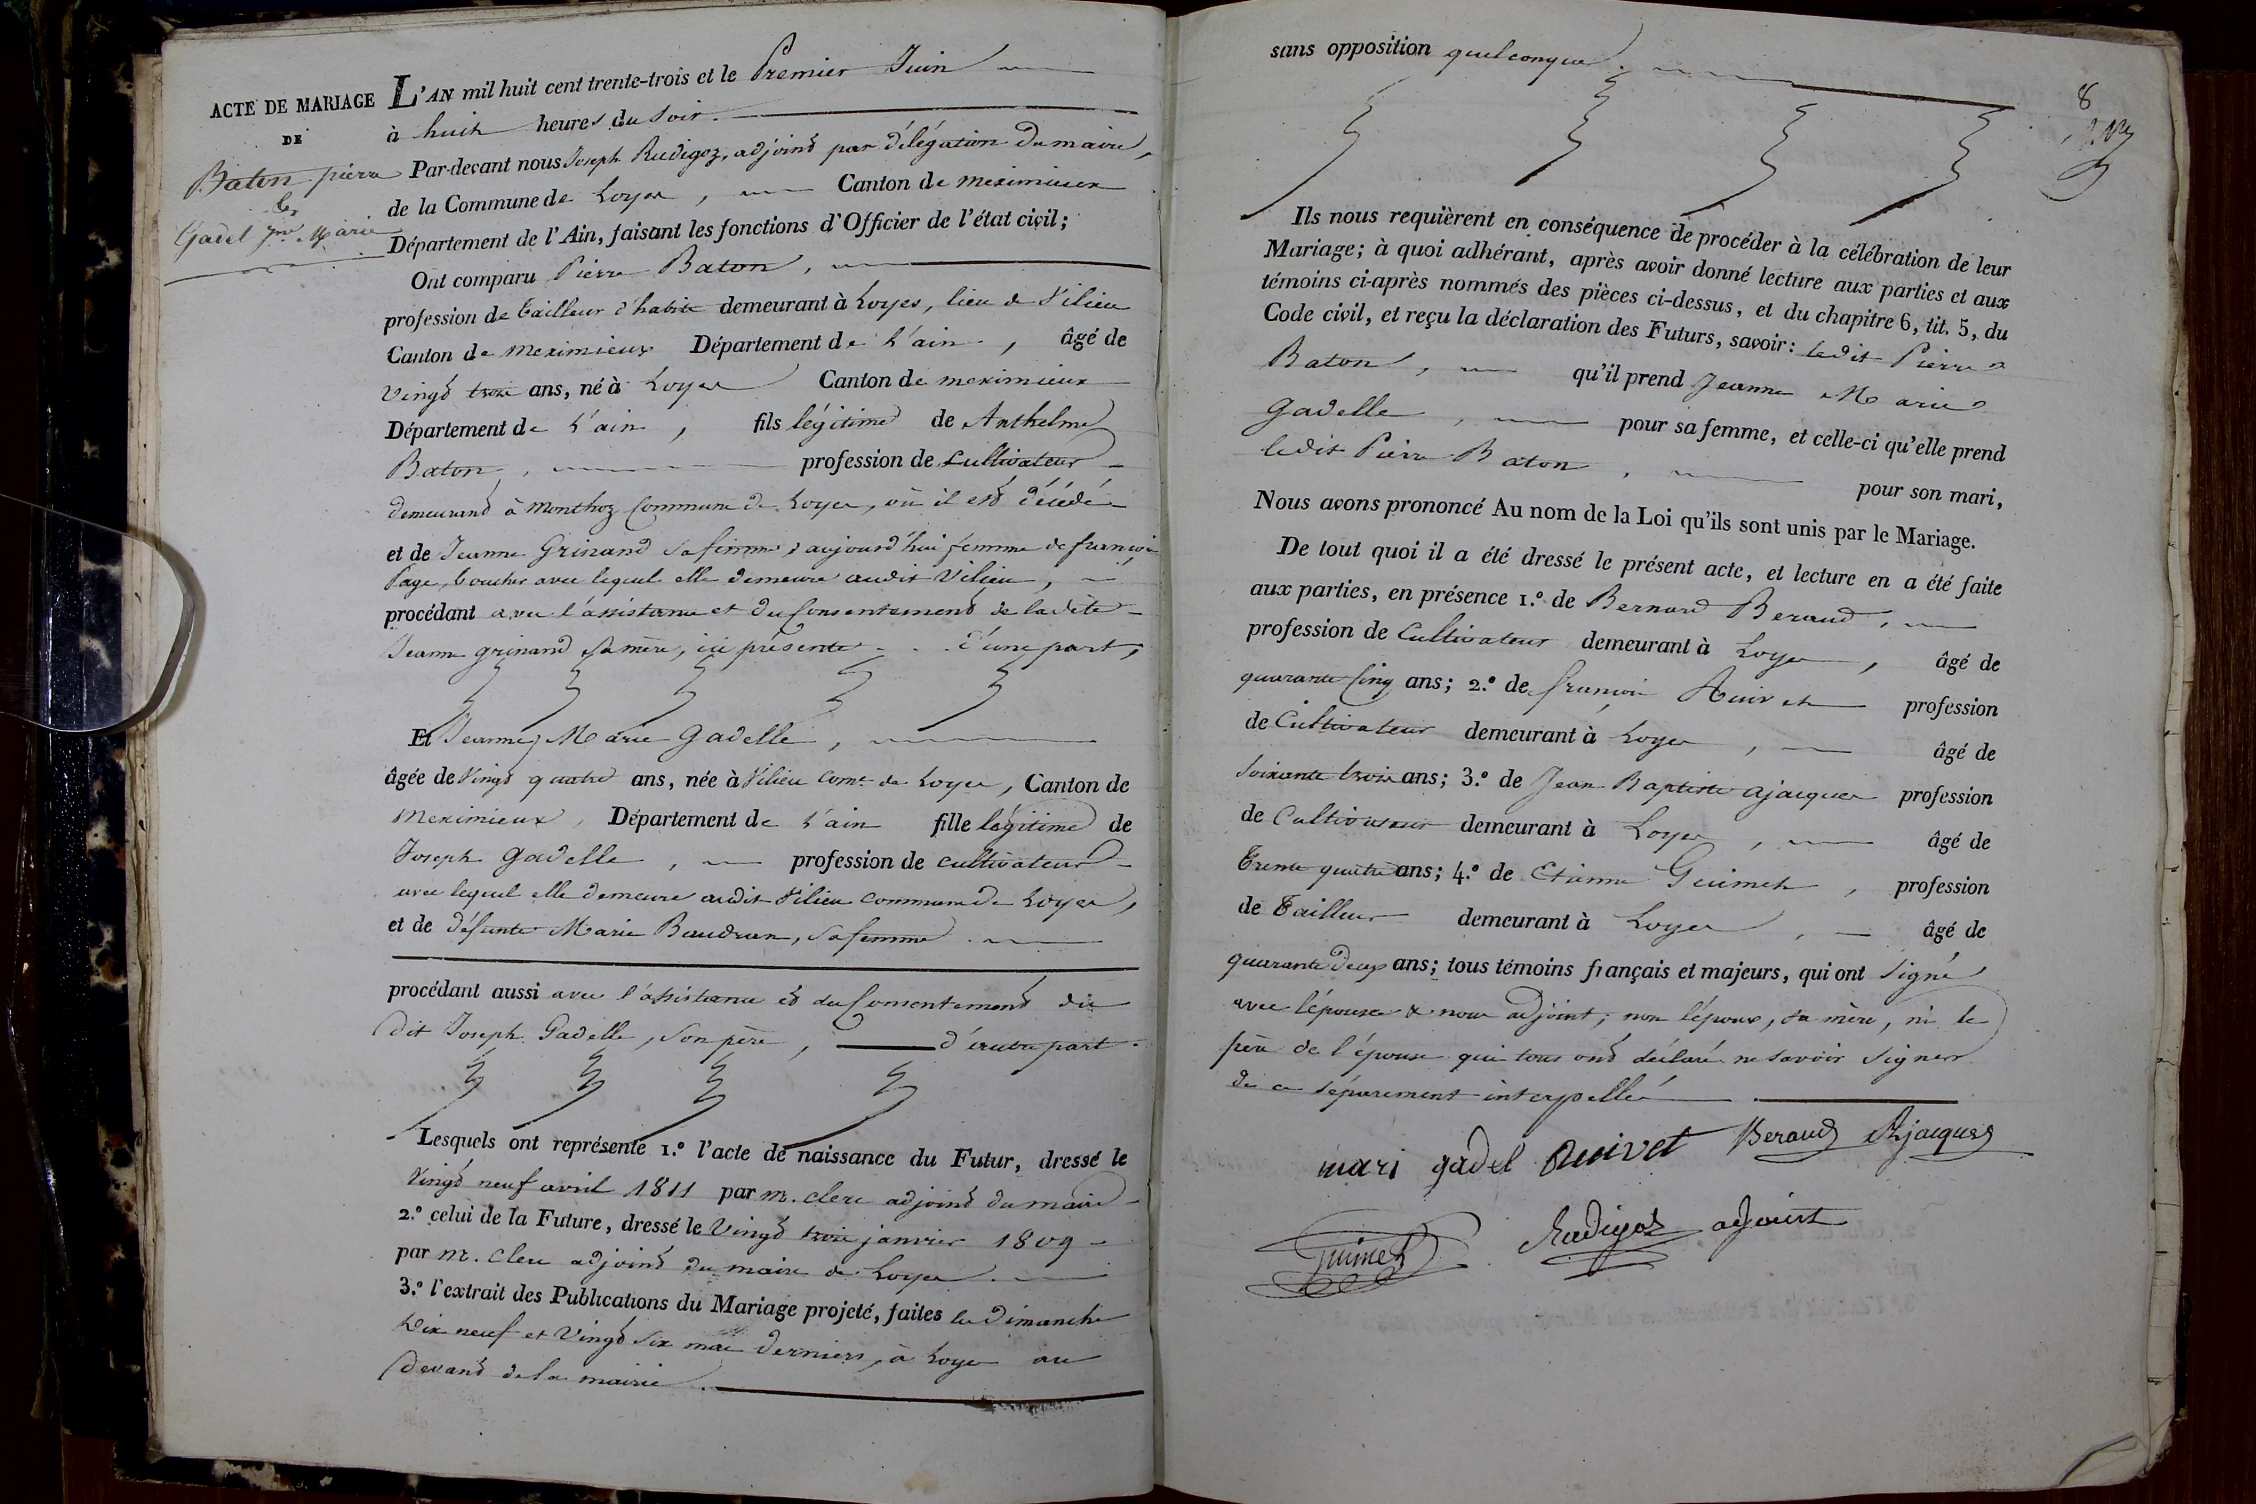 ACTE DE MARIAGE
DE
Baton pierre
&
Gadel Jne Marie
L'AN mil huit cent trente-trois et le Premier Juin
à huit heures du soir.
Par-devant nous Joseph Rudigoz, adjoint par délégation du maire,
de la Commune de Loyes, Canton de meximieux
Département de l'Ain, faisant les fonctions d'Officier de l'état civil;
Ont comparu Pierre Baton,
profession de tailleur d'habits demeurant à Loyes, lieu de Vilieu
Canton de meximieux Département de l'ain, âgé de
vingt trois ans, né à Loyes Canton de meximieux
Département de l'ain, fils légitime de Anthelme
Baton, profession de cultivateur
demeurant à Monthoz Commune de Loyes, où il est décédé
et de Jeanne Grinand sa femme, aujourd'hui femme de françois
Page, boucher avec lequel elle demeure audit Vilieu,
procédant avec l'assistance et du Consentement de ladite
Jeanne grinand sa mère, ici présente d'une part,
Et Jeanne Marie Gadelle,
âgée de Vingt quatre ans, née à Vilieu come de Loyes, Canton de
Meximieux, Département de l'ain fille légitime de
Joseph Gadelle, profession de cultivateur
avec lequel elle demeure audit Vilieu commune de Loyes,
et de défunte Marie Baudran, sa femme.
procédant aussi avec l'assistance et du Consentement du
dit Joseph Gadelle, son père, d'autre part.
Lesquels ont représenté 1.º l'acte de naissance du Futur, dressé le
Vingt neuf avril 1811 par m. clerc adjoint du maire
2.º celui de la Future, dressé le Vingt trois janvier 1809
par m. clerc adjoint du maire de Loyes.
3.º l'extrait des Publications du Mariage projeté, faites les dimanche
Dix neuf et Vingt six mai derniers, à Loyes au
devant de la mairie.
sans opposition quelconque.
8
Ils nous requièrent en conséquence de procéder à la célébration de leur
Mariage; à quoi adhérant, après avoir donné lecture aux parties et aux
témoins ci-après nommés des pièces ci-dessus, et du chapitre 6, tit. 5, du
Code civil, et reçu la déclaration des Futurs, savoir: ledit Pierre
Baton, qu'il prend Jeanne Marie
Gadelle, pour sa femme, et celle-ci qu'elle prend
ledit Pierre Baton, pour son mari,
Nous avons prononcé Au nom de la Loi qu'ils sont unis par le Mariage.
De tout quoi il a été dressé le présent acte, et lecture en a été faite
aux parties, en présence 1.º de Bernard Beraud,
profession de Cultivateur demeurant à Loyes, âgé de
quarante cinq ans; 2.º de françois Ruivet profession
de Cultivateur demeurant à Loyes, âgé de
soixante trois ans; 3.º de Jean Baptiste ajacques profession
de Cultivateur demeurant à Loyes, âgé de
Trente quatre ans; 4.º de Etienne Guimet, profession
de Tailleur demeurant à Loyes, âgé de
quarante deux ans; tous témoins français et majeurs, qui ont signé
avec l'épouse & nous adjoint; non l'époux, sa mère, ni le
père de l'épouse qui tous ont déclaré ne savoir signer
de ce séparément interpellés
mari gadel Ruivet Beraud Ajacques
Guimet Rudigoz adjoint